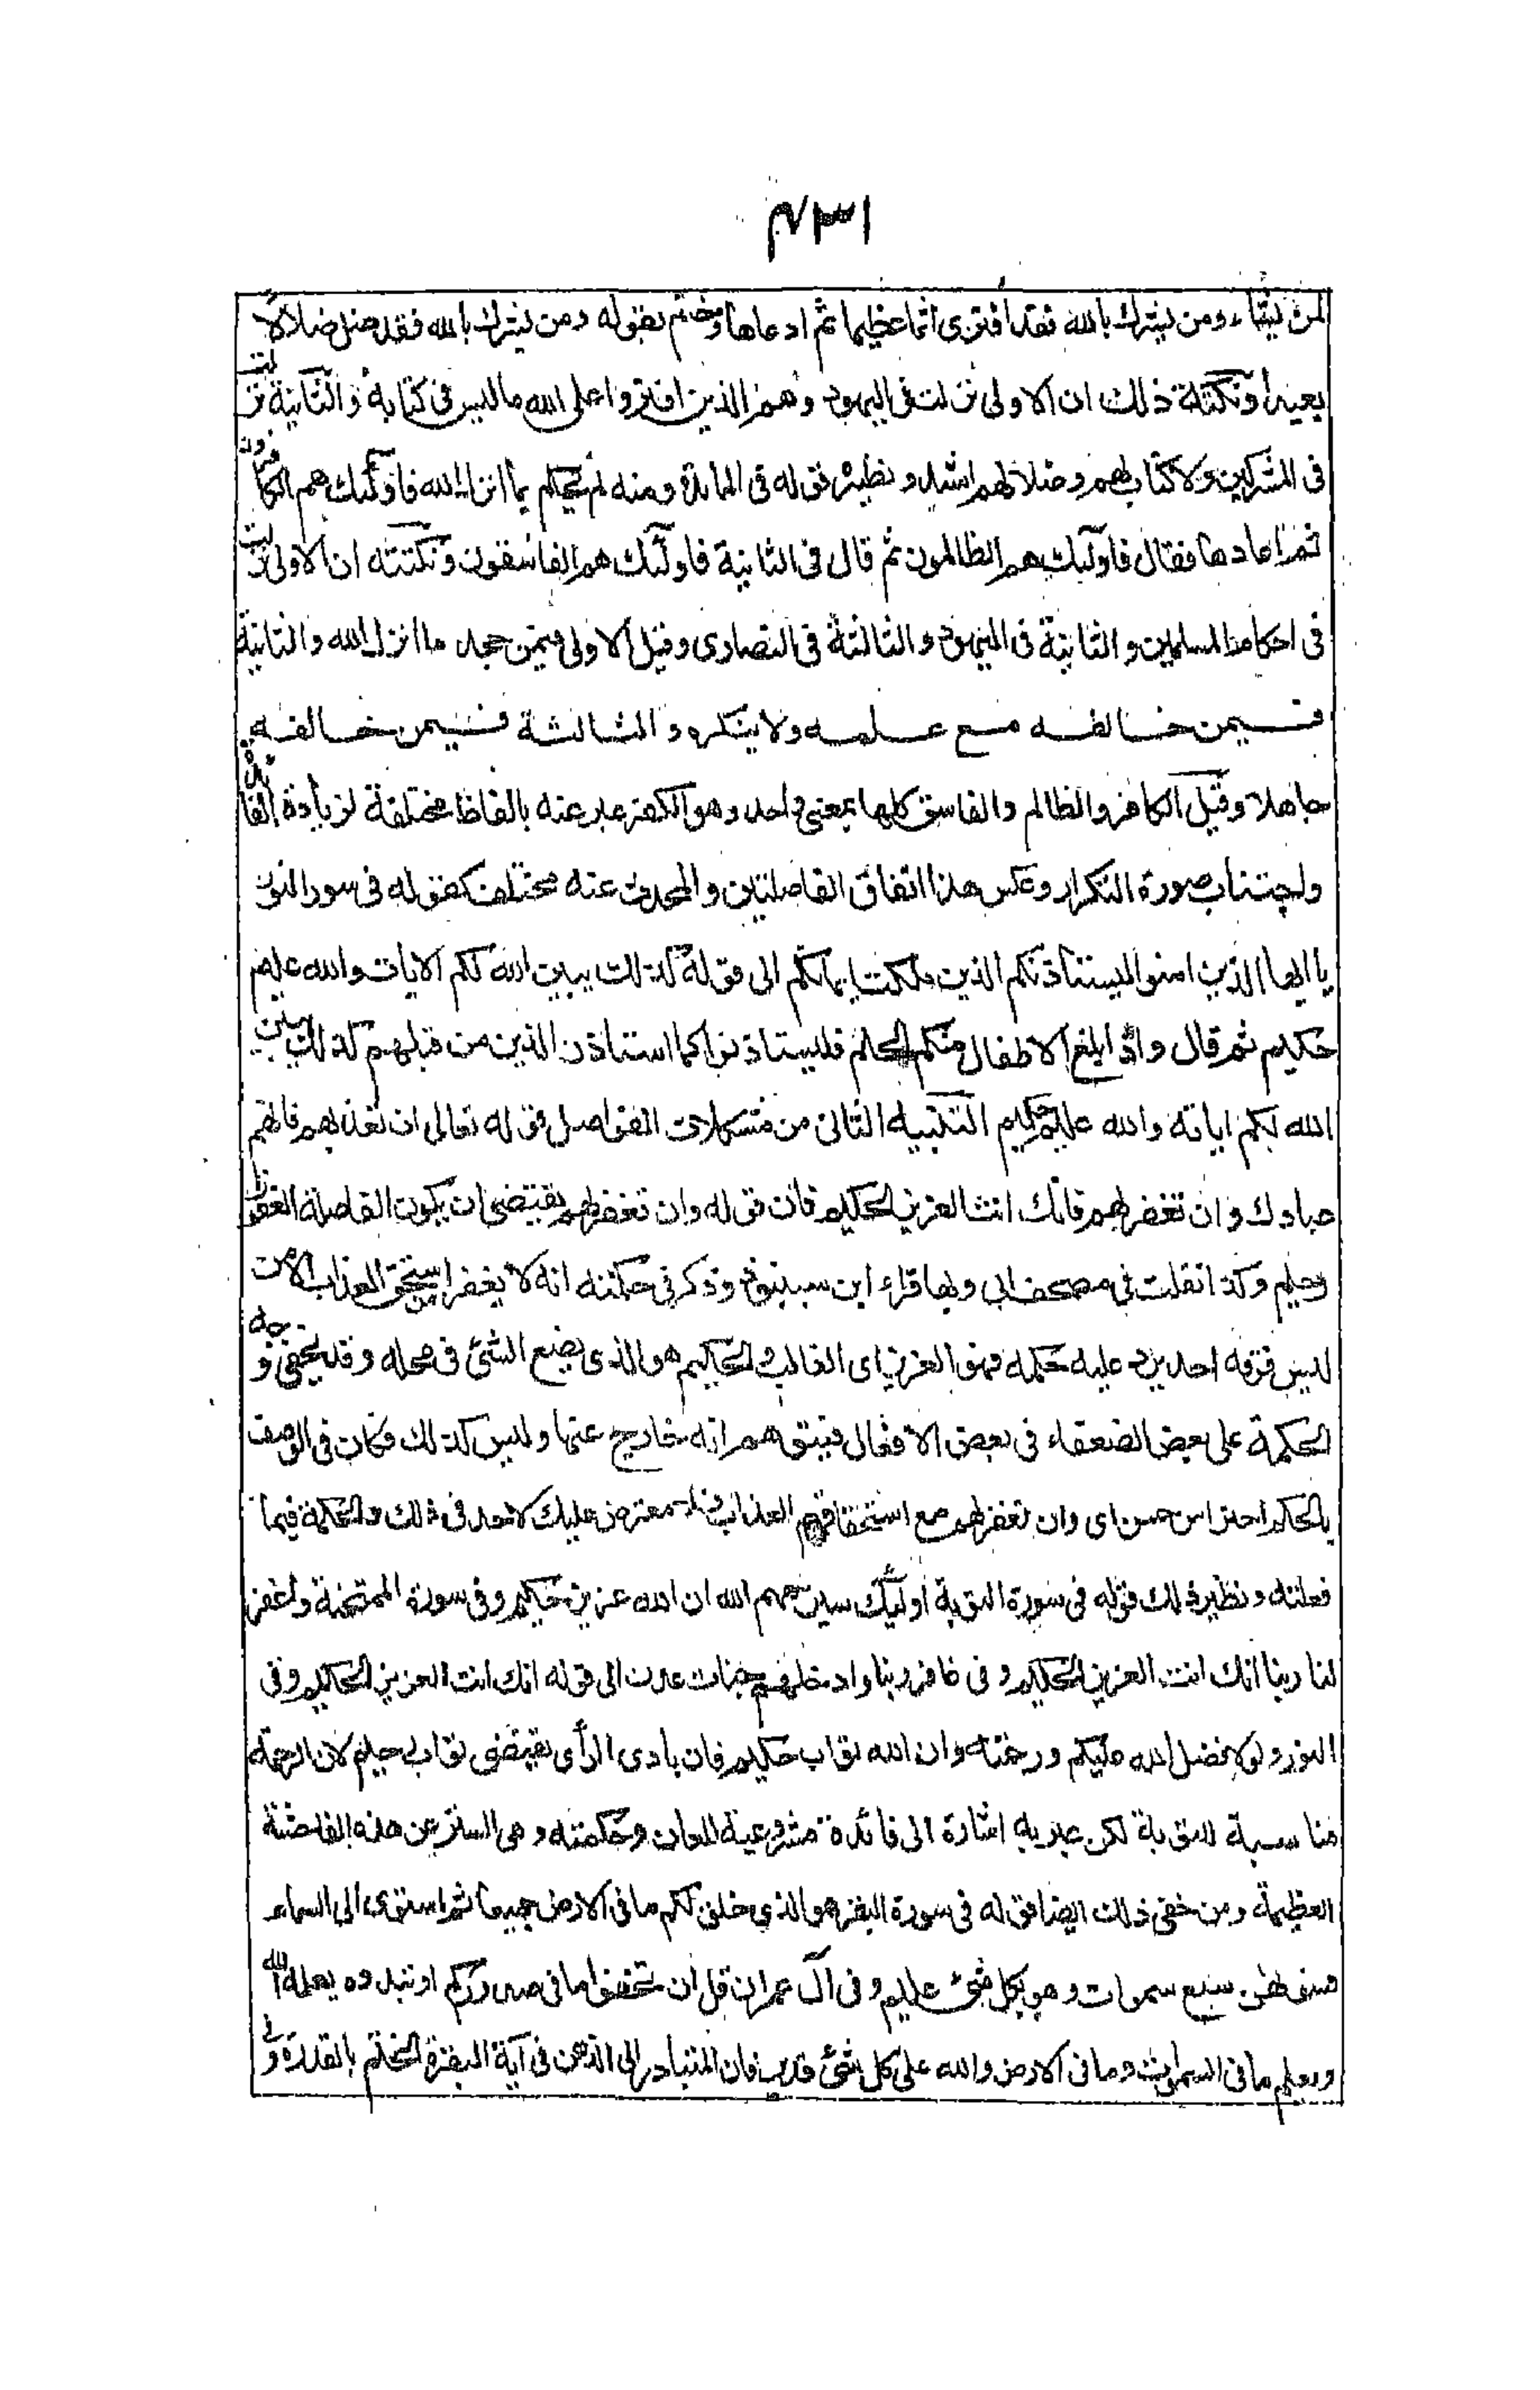 ٤٣١
لمن يشاء ومن يشرك بالله فقد افترى اثما عظيما ثم اعادها وختم بقوله ومن يشرك بالله فقد ضل ضلالا
بعيدا ونكتة ذلك ان الاولى نزلت فى اليهود وهم الذين افتروا على الله ما ليس فى كتابه والثانية نزلت
فى المشركين ولا كتاب لهم وضلالهم اشد ونظيره قوله فى المائدة ومنه لم يحكم بما انزل الله فاولئك هم الكافرون
ثمر اعادها فقال فاولئك هم الظالمون ثم قال فى الثانية فاولئك هم الفاسقون ونكتته ان الاولى نزلت
فى احكام المسلمين والثانية فى اليهود والثالثة فى النصارى وقيل الاولى فيمن جحد ما انزل الله والثانية
فيمن خالفه مع علمه ولا ينكره والثالثة فيمن خالفه
جاهلا وقيل الكافر والظالم والفاسق كلها بمعنى واحد وهو الكفر عبر عنه بالفاظ مختلفة لزيادة الفائدة
واجتناب صورة التكرار وعكس هذا اتفاق الفاصلتين والمحدث عنه مختلف كقوله فى سورة النور
يا ايها الذين امنوا ليستأذنكم الذين ملكت ايمانكم الى قوله كذلك يبين الله لكم الايات والله عليم
حكيم ثم قال واذا بلغ الاطفال منكم الحلم فليستاذنوا كما استاذن الذين من قبلهم كذلك يبين
الله لكم اياته والله عليم حكيم التنبيه الثانى من مشكلات الفواصل قوله تعالى ان تعذبهم فانهم
عبادك وان تغفر لهم فانك انت العزيز الحكيم فان قوله وان تغفر لهم يقتضى ان يكون الفاصلة الغفور
رحيم وكذا نقلت فى مصحف ابى وبها قراء ابن سنبوذ وذكر فى حكمته انه لا يغفر لمن استحق العذاب الا من
ليس فوقه احد يرد عليه حكمه فهو العزيز اى الغالب والحكيم هو الذى يضع الشئ فى محله وقد يخفى وجه
الحكمة على بعض الضعفاء فى بعض الافعال فيتوهم انه خارج عنها وليس كذلك فكان فى الوصف
بالحكيم احتراس حسن اى وان تغفر لهم مع استحقاقهم العذاب فلا معترض عليك لاحد فى ذلك والحكمة فيما
فعلته ونظير ذلك قوله فى سورة التوبة اولئك سيرحمهم الله ان الله عزيز حكيم وفى سورة الممتحنة واغفر
لنا ربنا انك انت العزيز الحكيم وفى غافر ربنا وادخلهم جنات عدن الى قوله انك انت العزيز الحكيم وفى
النور ولولا فضل الله عليكم ورحمته وان الله تواب حكيم فان بادى الرأى يقتضى تواب رحيم لان الرحمة
مناسبة للتوبة لكن عبر به اشارة الى فائدة مشروعية اللعان وحكمته وهى الستر عن هذه الفاحشة
العظيمة ومن خفى ذلك ايضا قوله فى سورة البقرة هو الذى خلق لكم ما فى الارض جميعا ثم استوى الى السماء
فسوٰهن سبع سموات وهو بكل شئ عليم وفى آل عمران قل ان تخفوا ما فى صدوركم او تبدوه يعلمه الله
ويعلم ما فى السموات وما فى الارض والله على كل شئ قدير فان المتبادر الى الذهن فى آية البقرة الختم بالقدرة وفى